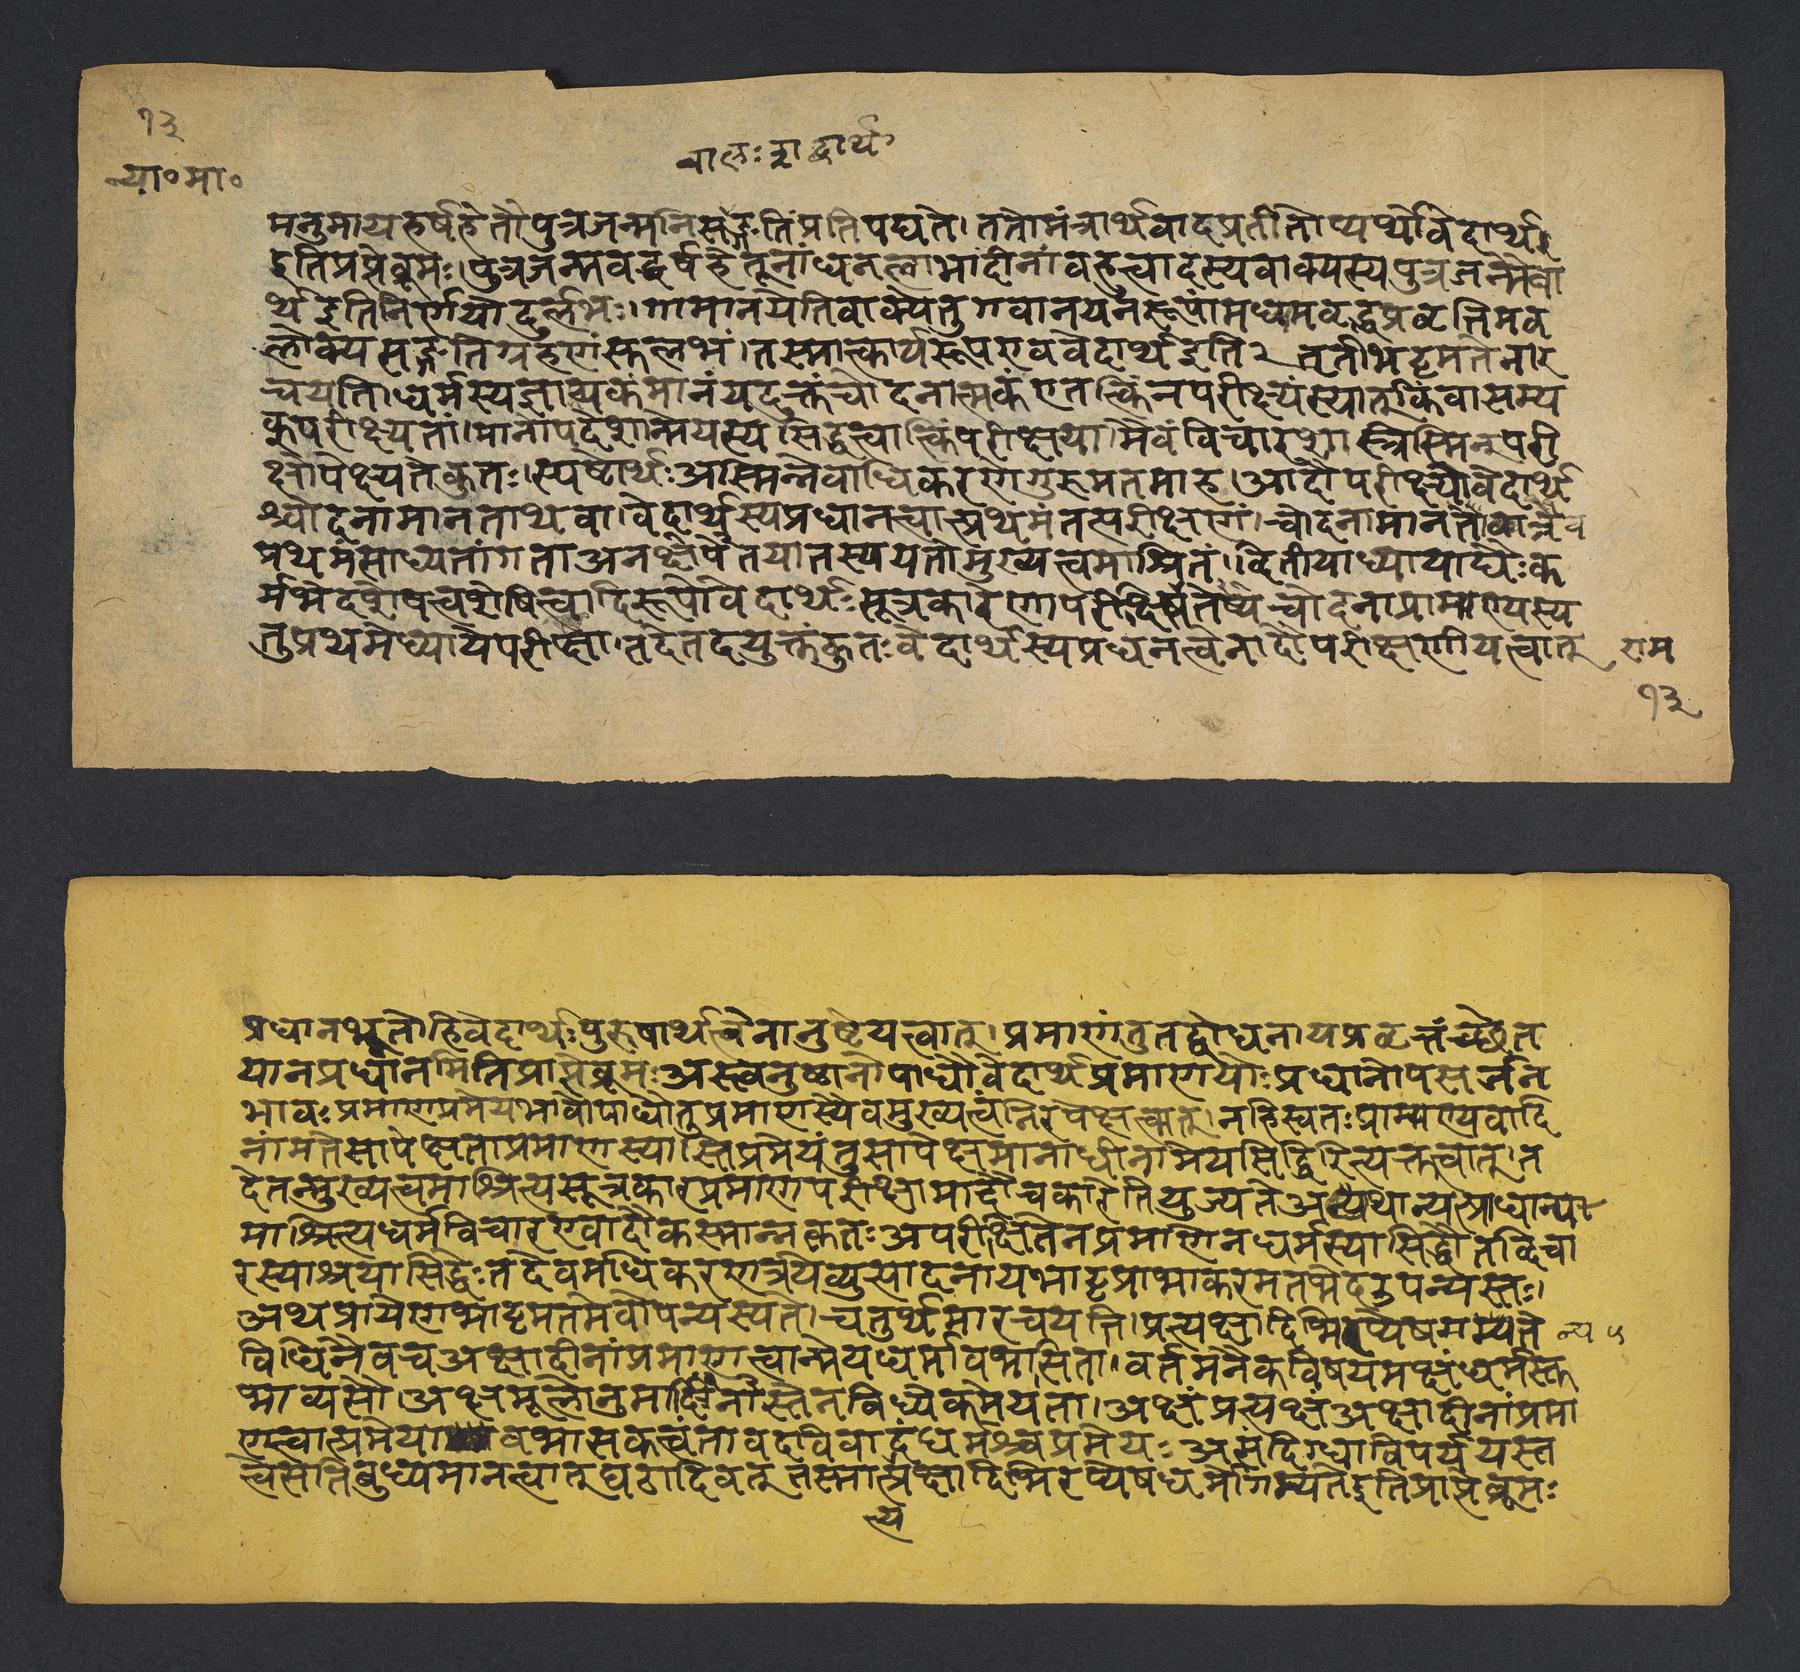 १३
न्या॰मा॰
मनुमायहर्षहेतौपुत्रजन्मनिसङ्गतिंप्रतिपद्यते। ततोमंत्रार्थवादप्रतीतोप्यर्थोवेदार्थ
इतिप्राप्तेब्रूमः।पुत्रजन्मवद्धर्षहेतूनांधनलाभादीनांवहुत्वादस्यवाक्यस्यपुत्रजन्मैवा
र्थइतिनिर्णयोदुर्लभः। गामानयेतिवाक्येतुगवानयनरूपांमध्यमवृद्धप्रवृत्तिमव
लोक्यसङ्गतिग्रहणंसुलभं।तस्मात्कार्यरूपएववेदार्थइति२ तृतीयंभट्टमतेनार
चयति।धर्मस्यज्ञाप्यकंमानंयदुक्तंचोदनात्मकंएतत्किंनपरीक्ष्यंस्यात्किंवासम्य
क्परीक्ष्यतां।मानोपदेशान्मेयस्यसिद्धत्वात्किंपरीक्षया।मैवंविचारशास्त्रेस्मिन्परी
क्षोपेक्ष्यतेकुतः।स्पष्टार्थः अस्मिन्नेवाधिकरणेगुरुमतमाह।आदौपरीक्ष्योवेदार्थ
श्चोदनामानताथवा।वेदार्थस्यप्रधानत्वात्प्रथमंतत्परीक्षणं।चोदनामानतैवात्रैव
प्रथमंसाध्यतांगताअनक्षेपेतयातस्ययतोमुख्यत्वमाश्रितं।द्वितीयाध्यायाद्यैःक
र्मभेदशेषत्वशेषित्वादिरूपोवेदार्थःसूत्रकारेणपरीक्षिष्यतेचोदनाप्रामाण्यस्य
तुप्रथमेध्यायेपरीक्षा।तदेतदयुक्तंकुतःवेदार्थस्यप्रधनत्वेनादौपरीक्षणीयत्वात्
राम
१३
प्रधानभूतोहिवेदार्थःपुरुषार्थत्वेनानुष्ठेयत्वात्। प्रमाणंतुतद्बोधनायप्रवृत्तंच्छेत
यानप्रधानमितिप्राप्तेब्रूमःअस्त्वनुष्ठानोपाधौवेदार्थप्रमाणयोःप्रधानोपसर्जन
भावःप्रमाणप्रमेयभावोपाधौतुप्रमाणस्यैवमुख्यत्वंनिरपेक्षत्वात्।नहिस्वतःप्रामाण्यवादि
नांमतेसापेक्षताप्रमाणस्यास्तिप्रमेयंतुसापेक्षंमानाधीनामेयसिद्धिरित्युक्तत्वात्।त
देतन्मुख्यत्वमाश्रित्यसूत्रकारःप्रमाणपरीक्षामादौचकारेतियुज्यतेअन्यथान्यप्राधान्य
माश्रित्यधर्मविचारएवादौकस्मान्नकृतःअपरीक्षितेनप्रमाणेनधर्मस्यासिद्धौतद्विचा
रस्याश्रयासिद्धेःतदेवमधिकरणत्रयेव्युत्पादनायभाट्टप्राभाकरमतभेदउपन्यस्तः।
अथप्रायेणभाट्टमतमेवोपन्यस्यते।चतुर्थमारचयति।प्रत्यक्षादिभिरप्येषगम्यते
विधिनैवचअक्षादीनांप्रमाणत्वान्मेयधर्मावभासिता।वर्तमानैकविषयमक्षंधर्मस्तु
भाव्यसौ।अक्षमूलोनुमादिर्नोस्तेनविध्येकमेयता।अक्षंप्रत्यक्षंअक्षादीनांप्रमा
णत्वात्प्रमेयावभासकत्वंतावदविवादंधर्मश्चप्रमेयःअसंदिग्धाविपर्ययस्त
त्वेसतिबुध्यमानत्वात्घटादिवत्तस्मात्प्रत्यक्षादिभिरप्येषधर्मोगम्यतेइतिप्राप्तेब्रूमः
त्य